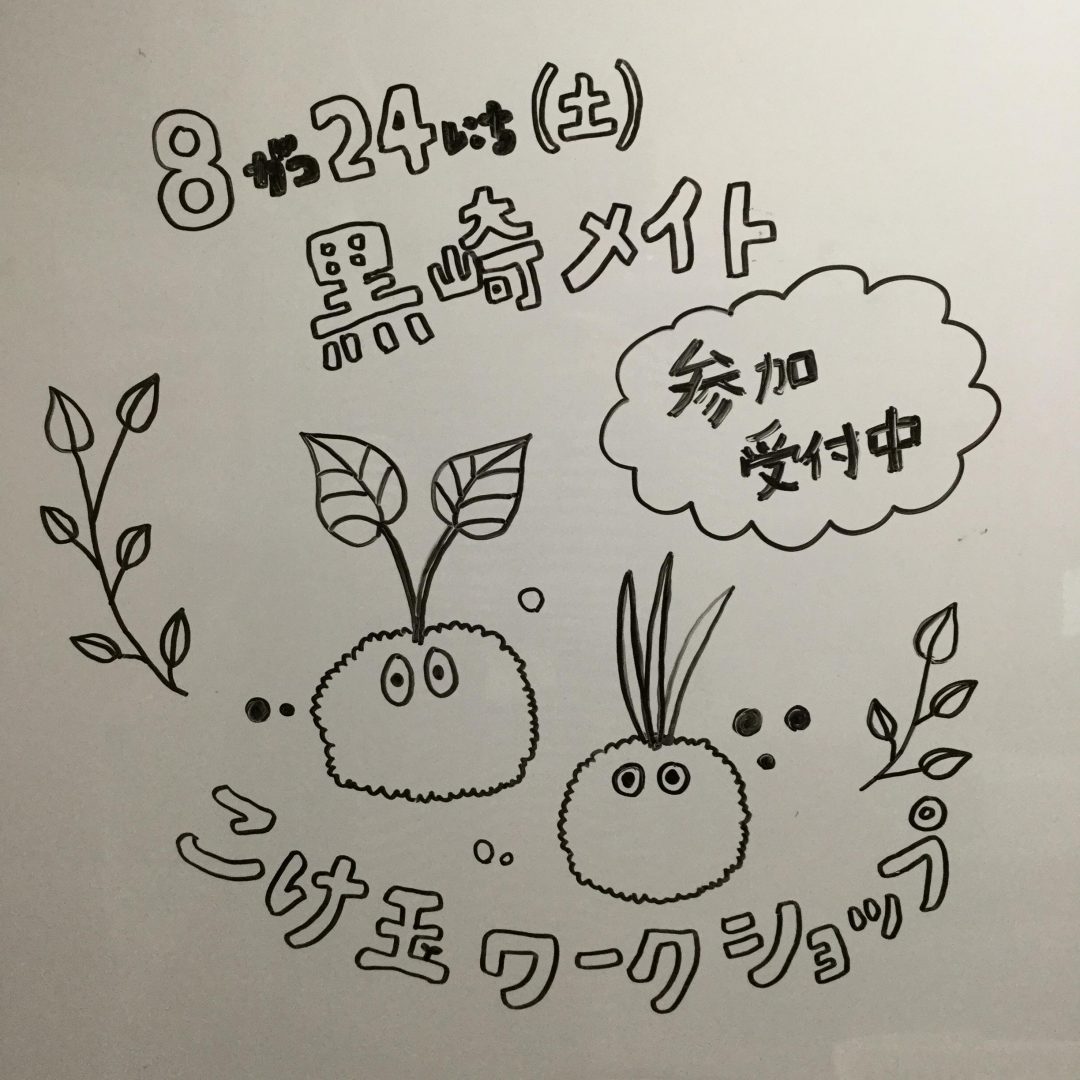 8がつ24にち(土)
黒崎メイト
参加
受付中
こけ玉ワークショップ